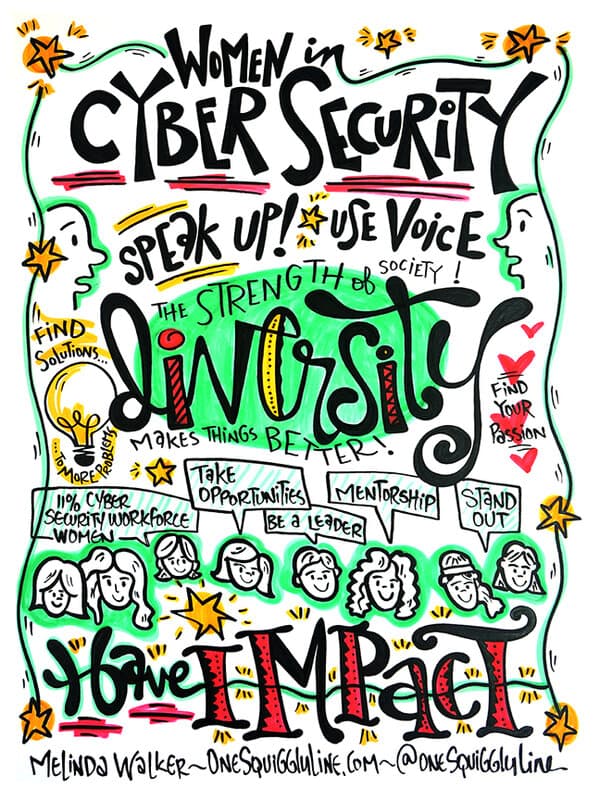 WOMEN in
CYBER SECURITY
SPEAK UP! USE VOICE
THE STRENGTH of SOCIETY!
diversity
MAKES THINGS BETTER!
FIND
Solutions...
...TO MORE PROBLEMS
FIND
YOUR
Passion
11% CYBER
SECURITY WORKFORCE
WOMEN
TAKE
OPPORTUNITIES
BE A LEADER
MENTORSHIP
STAND
OUT
Have IMPACT
MELINDA WALKER~ONESQUIGGLYLINE.COM~@ONESQUIGGLYLINE